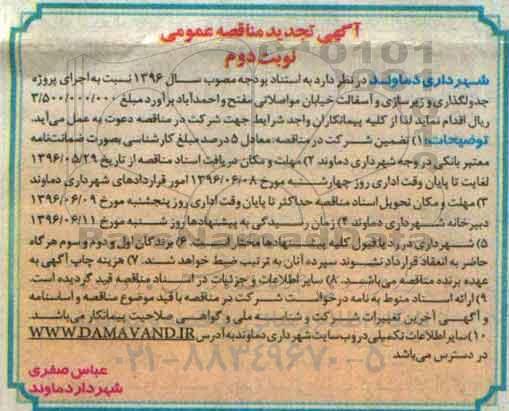 آگهی تجدید مناقصه عمومی
نوبت دوم
شهرداری دماوند در نظر دارد به استناد بودجه مصوب سال ۱۳۹۶ نسبت به اجرای پروژه
جدولگذاری و زیرسازی و آسفالت خیابان مواصلاتی مفتح و احمدآباد برآورد مبلغ ۳/۵۰۰/۰۰۰/۰۰۰
ریال اقدام نماید لذا از کلیه پیمانکاران واجد شرایط جهت شرکت در مناقصه دعوت به عمل می‌آید.
توضیحات: ۱) تضمین شرکت در مناقصه: معادل ۵ درصد مبلغ کارشناسی بصورت ضمانت‌نامه
معتبر بانکی در وجه شهرداری دماوند ۲) مهلت و مکان دریافت اسناد مناقصه از تاریخ ۱۳۹۶/۰۵/۲۹
لغایت تا پایان وقت اداری روز چهارشنبه مورخ ۱۳۹۶/۰۶/۰۸ امور قراردادهای شهرداری دماوند
۳) مهلت و مکان تحویل اسناد مناقصه حداکثر تا پایان وقت اداری روز پنجشنبه مورخ ۱۳۹۶/۰۶/۰۹
دبیرخانه شهرداری دماوند ۴) زمان رسیدگی به پیشنهادها روز شنبه مورخ ۱۳۹۶/۰۶/۱۱
۵) شهرداری در رد یا قبول کلیه پیشنهادها مختار است. ۶) برندگان اول و دوم و سوم هرگاه
حاضر به انعقاد قرارداد نشوند سپرده آنان به ترتیب ضبط خواهد شد: ۷) هزینه چاپ آگهی به
عهده برنده مناقصه می‌باشد. ۸) سایر اطلاعات و جزئیات در اسناد مناقصه قید گردیده است.
۹) ارائه اسناد منوط به نامه درخواست شرکت در مناقصه با قید موضوع مناقصه و اساسنامه
و آگهی آخرین تغییرات شرکت و شناسه ملی و گواهی صلاحیت پیمانکار می‌باشد.
۱۰) سایر اطلاعات تکمیلی در وب سایت شهرداری دماوند به آدرس WWW.DAMAVAND.IR
در دسترس می‌باشد
عباس صفری
شهردار دماوند
۰۲۱-۸۸۳۴۹۶۷۰-۵